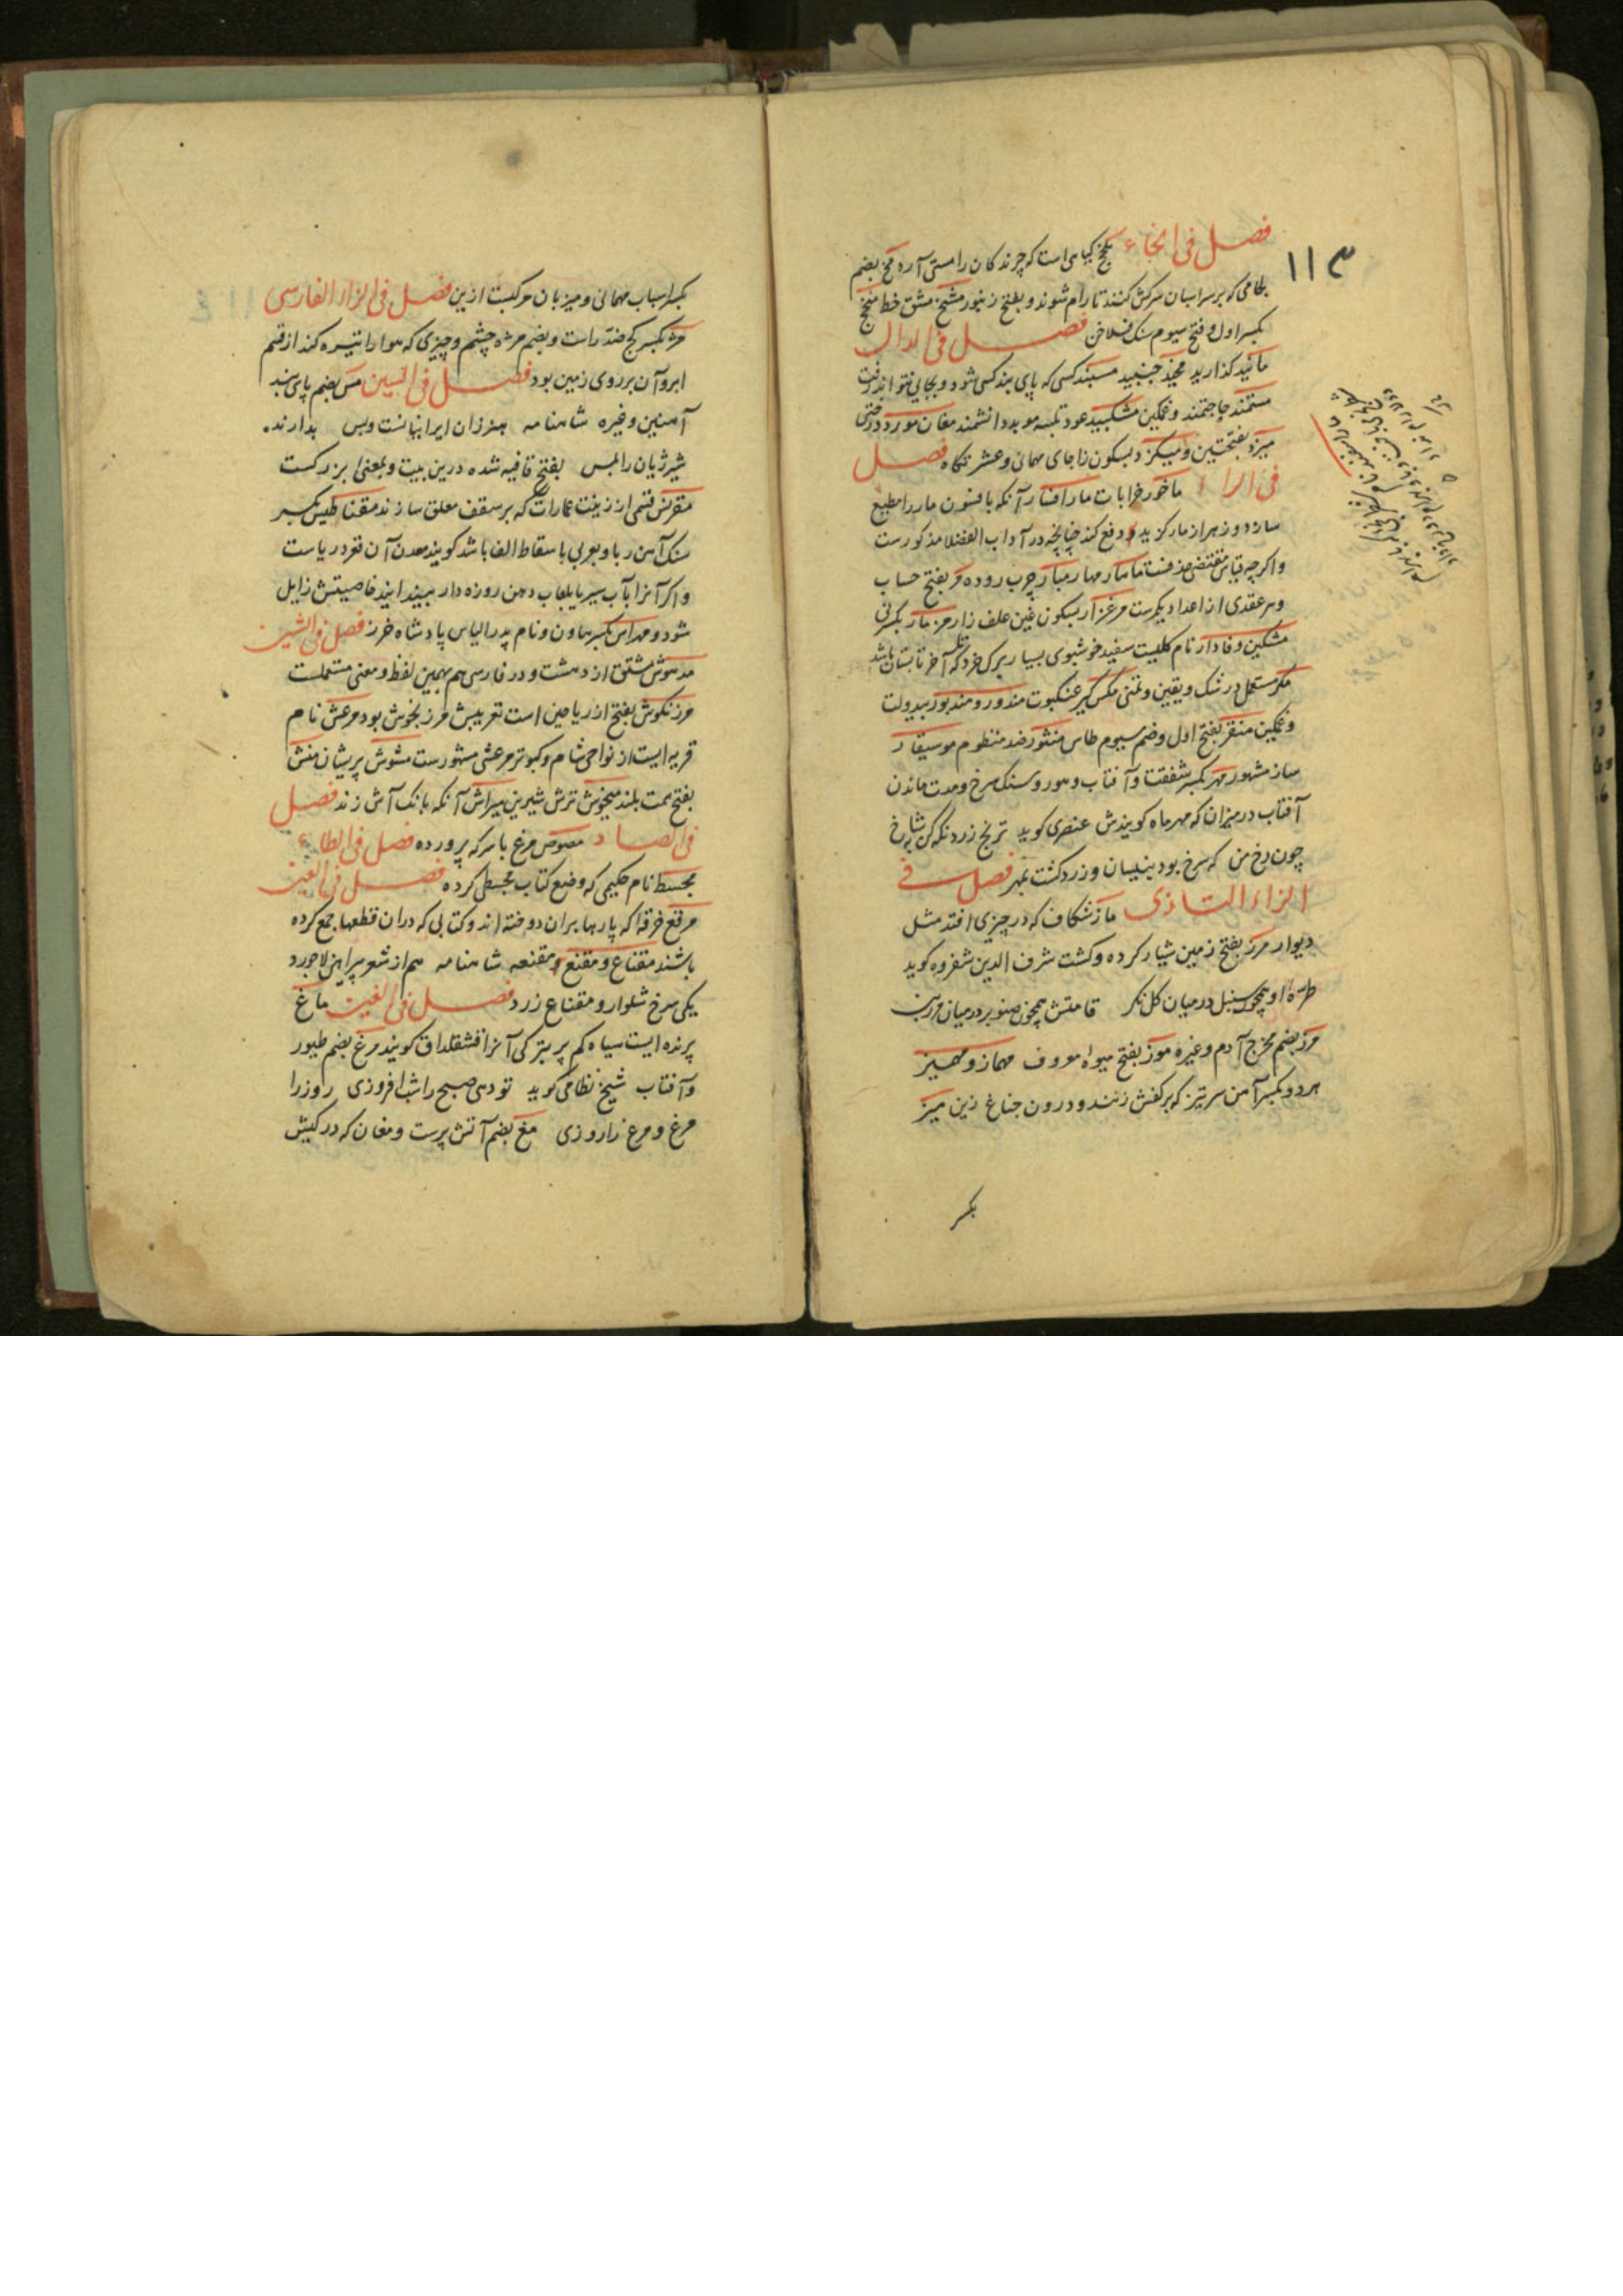 ۱۱۳
فصل فی الخاء مخ گیاهی است که چرندگان را مستی آرد مخ بضم
لجامی که بر سر اسبان سرکش کنند تا رام شوند و بفتح زنبور مشخ مشق خط منخ
بکسر اول و فتح سیوم سنک فلاخن فصل فی الدال
مانید کذارید مخید جنبید مستمند کسی که پای بند کسی شود و بجایی نتواند رفت
مستمند حاجتمند و غمکین مشکبید عود تکسه موبد دانشمند مغان مورد درختی
میزد بفتحتین و میکزد بسکون زا جای مهمانی و عشرتکاه فصل
فی الراء ماخور خرابات مارافسار آنکه بافسون مار را مطیع
سازد و زهر از مار کزیده دفع کند چنانچه در آداب الفضلا مذکورست
واکرچه قیاس مقتضی حذفست ماسار مهار مبار چرب روده مر بفتح حساب
وهر عقدی از اعداد یکرست مرغزار بسکون غین علف زار مزمار بکسر نی
مشکین وفادار نام کلیست سفید خوشبوی بسیار برک خرد که آخر تابستان باشد
مکر مستعمل در شک و یقین و تمنی مکس کیر عنکبوت مندور و مندبور بیدولت
و غمکین منقر بفتح اول و ضم سیوم طاس منثور ضد منظوم موسیقار
ساز مشهور مهر بکسر شفقت و آفتاب و هور و سنک سرخ و مدت ماندن
آفتاب در میزان که مهرماه کویندش عنصری کوید ترنج زرد نکه کن بشاخ
چون رخ من که سرخ بود بنیسان و زرد کشت بمهر فصل فی
الزاء التازی ماز شکاف که در چیزی افتد مثل
دیوار مرز بفتح زمین شیار کرده و کشت شرف الدین شفروه کوید
طرّهٔ او همچو سنبل درمیان کل نکر قامتش همچون صنوبر درمیان مرز بین
مرز بضم مخرج آدم وغیره موز بفتح میوهٔ معروف مهماز و مهمیز
هر دو بکسر آهن سرتیز که بر کفش زنند و درون جناغ زین میز
بکسر
بکسر اسباب مهمانی و میزبان مرکبست ازین فصل فی الزاء الفارسی
مژ بکسر کج ضد راست و بضم مژه چشم و چیزی که هوا را تیره کند از قسم
ابر و آن بر روی زمین بود فصل فی السین مس بضم پای بند
آهنین وغیره شاهنامه بدارند.
شیر ژیان را بس بفتح قافیه شده درین بیت و بمعنی بزرکست
مقرنس قسمی از زینت عمارات که بر سقف معلق سازند مقناطیس بکسر
سنک آهن ربا و بعربی باسقاط الف باشد کویند معدن آن قعر دریاست
واکر آنرا بآب سیر یا بلعاب دهن روزه دار بیندایند خاصیتش زایل
شود و مهراس بکسر هاون و نام پدر الیاس پادشاه خزر فصل فی الشین
مدهوش مشتق از دهشت و در فارسی هم بهمین لفظ و معنی مستعملست
مرزنکوش بفتح از ریاحین است تعریبش مرزنجوش بود مرعش نام
قریه ایست از نواحی شام و کبوتر مرعشی مشهورست مشوش پریشان منش
بفتح همت بلند میخوش ترش شیرین آنکه بانک آش زند فصل
فی الصاد مصوص مرغ با سرکه پرورده فصل فی الطاء
مجسط نام حکیمی که وضع کتاب مجسطی کرده فصل فی العین
مرقع خرقه که پارها بران دوخته اند و کتابی که دران قطعها جمع کرده
باشند مقناع و مقنع و مقنعه شاهنامه هم از شعر پیراهن لاجورد
یکی سرخ شلوار و مقناع زرد فصل فی الغین ماغ
پرنده ایست سیاه کم پر بترکی آنرا قشقلداق کویند مرغ بضم طیور
و آفتاب شیخ نظامی کوید تو دهی صبح را شب افروزی روز را
مرغ و مرغ را روزی مغ بضم آتش پرست و مغان که در کیش